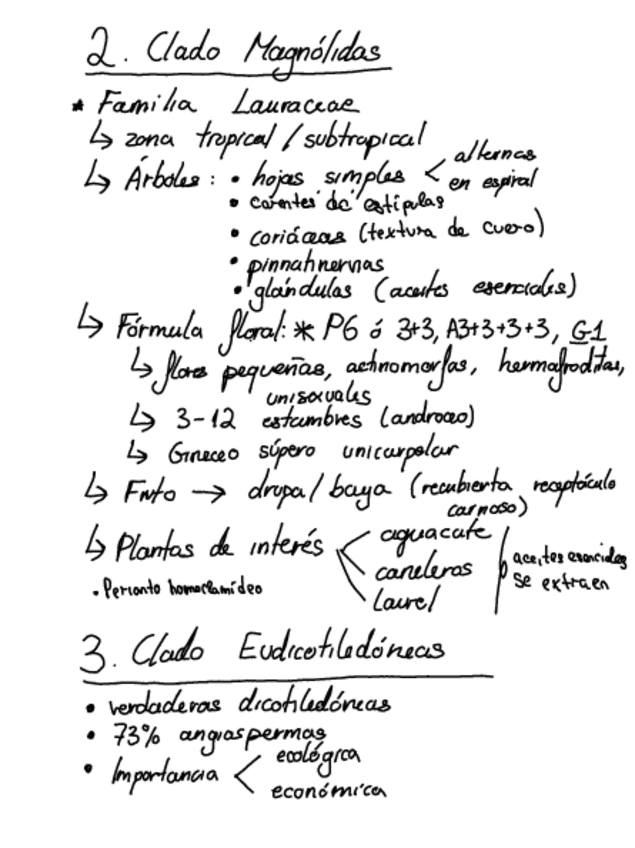 2. Clado Magnólidas
* Familia Lauraceae
↳ zona tropical / subtropical
↳ Árboles: • hojas simples < alternas
en espiral
• carentes de estípulas
• coriáceas (textura de cuero)
• pinnatinervias
• glándulas (aceites esenciales)
↳ Fórmula floral: * P6 ó 3+3, A3+3+3+3, G1
↳ flores pequeñas, actinomorfas, hermafroditas,
unisexuales
↳ 3-12 estambres (androceo)
↳ Gineceo súpero unicarpelar
↳ Fruto → drupa / baya (recubierta receptáculo
carnoso)
↳ Plantas de interés < aguacate
caneleros
laurel
aceites esenciales
se extraen
• Perianto homoclamídeo
3. Clado Eudicotiledóneas
• verdaderas dicotiledóneas
• 73% angiospermas
• Importancia < ecológica
económica